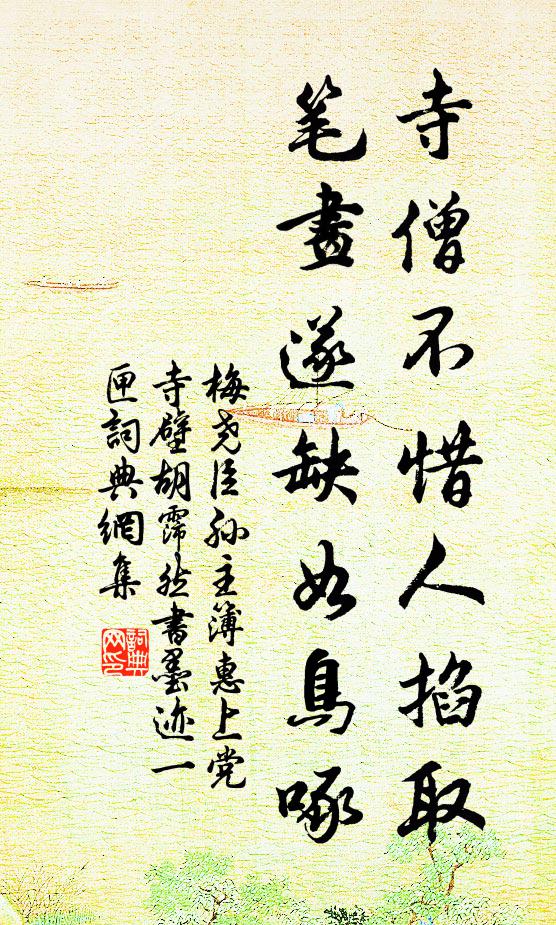 寺僧不惜人掐取
笔畫遂缺如鳥啄
梅尧臣孙主簿惠上党
寺壁胡霈然書墨迹一
匣詞典網集
詞典
网印